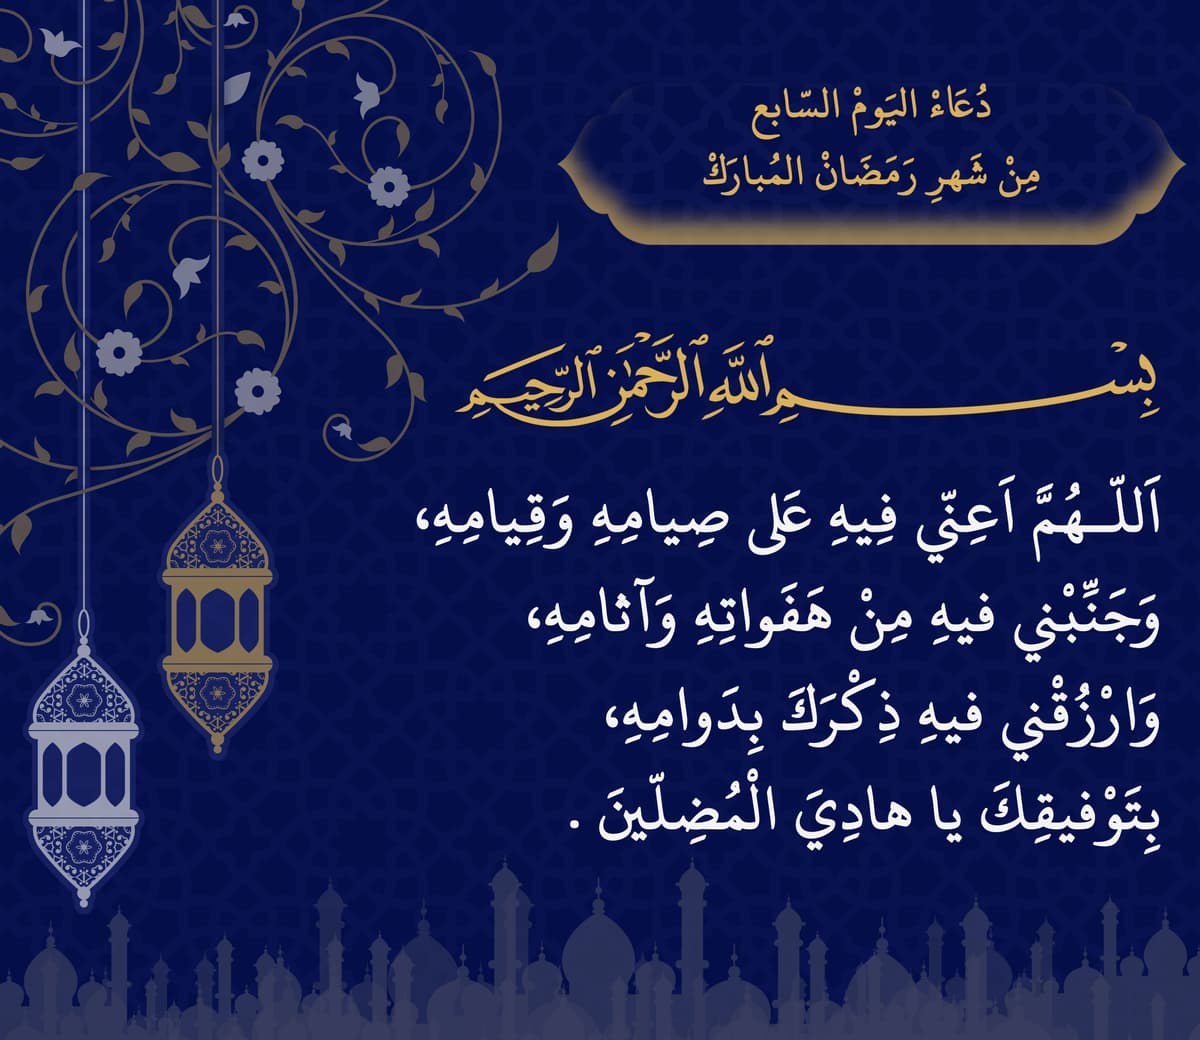 دُعَاءْ اليَومْ السّابع
مِنْ شَهرِ رَمَضَانْ المُبارَكْ
بِسْمِ ٱللَّهِ ٱلرَّحْمَٰنِ ٱلرَّحِيمِ
اَللّـهُمَّ اَعِنّي فِيهِ عَلى صِيامِهِ وَقِيامِهِ،
وَجَنِّبْني فيهِ مِنْ هَفَواتِهِ وَآثامِهِ،
وَارْزُقْني فيهِ ذِكْرَكَ بِدَوامِهِ،
بِتَوْفيقِكَ يا هادِيَ الْمُضِلّينَ .